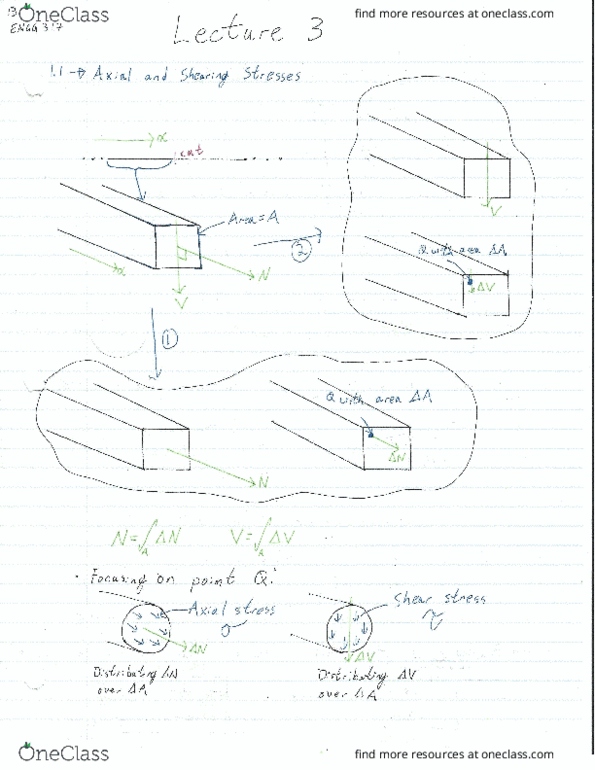 OneClass
find more resources at oneclass.com
ENGG 317
Lecture 3
1.1 → Axial and Shearing Stresses
x
cut
Area = A
N
V
x
②
V
Q with area ΔA
ΔV
①
N
Q with area ΔA
ΔN
N = ∫_A ΔN V = ∫_A ΔV
• Focusing on point Q:
Axial stress
σ
ΔN
Distributing ΔN
over ΔA
Shear stress
τ
ΔV
Distributing ΔV
over ΔA
OneClass
find more resources at oneclass.com